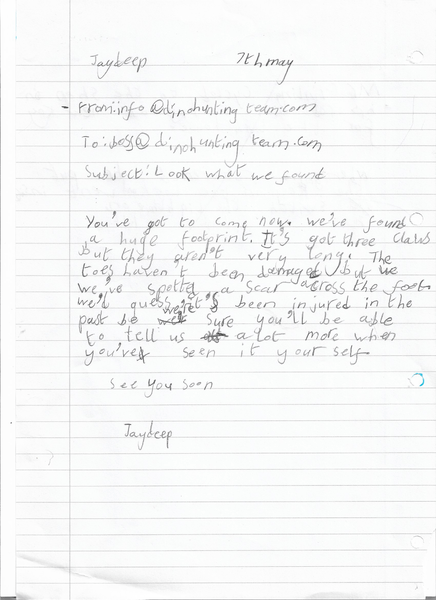 Jaydeep 7th may
- From:info @dinohunting team.com
To:boss@ dinohunting team.com
Subject: Look what we found
You've got to come now. we've found
a huge footprint. It's got three claws
but they aren't very long. The
toes haven't been damaged but we
we've spotted a scar across the foot
we'd guess it's been injured in the
past be we're sure you'll be able
to tell us a lot more when
you've seen it your self
See you soon
Jaydeep